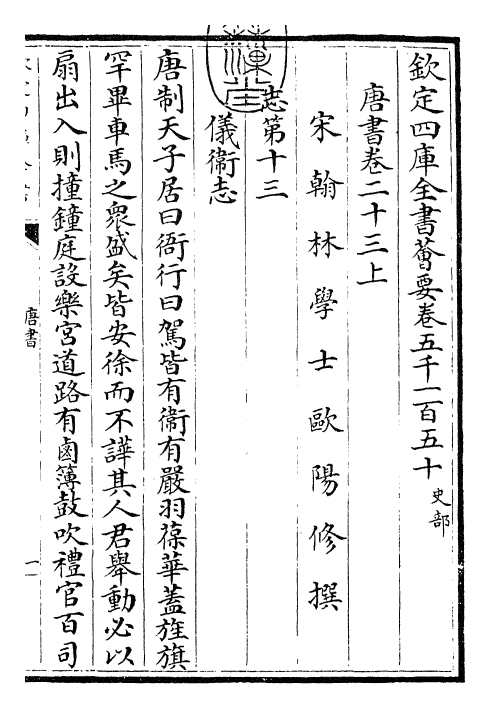 欽定四庫全書薈要卷五千一百五十 史部
唐書卷二十三上
宋翰林學士歐陽修撰
志第十三
儀衛志
唐制天子居曰衙行曰駕皆有衞有嚴羽葆華蓋旌旗
罕畢車馬之衆盛矣皆安徐而不譁其人君舉動必以
扇出入則撞鐘庭設樂宮道路有鹵簿鼓吹禮官百司
唐書